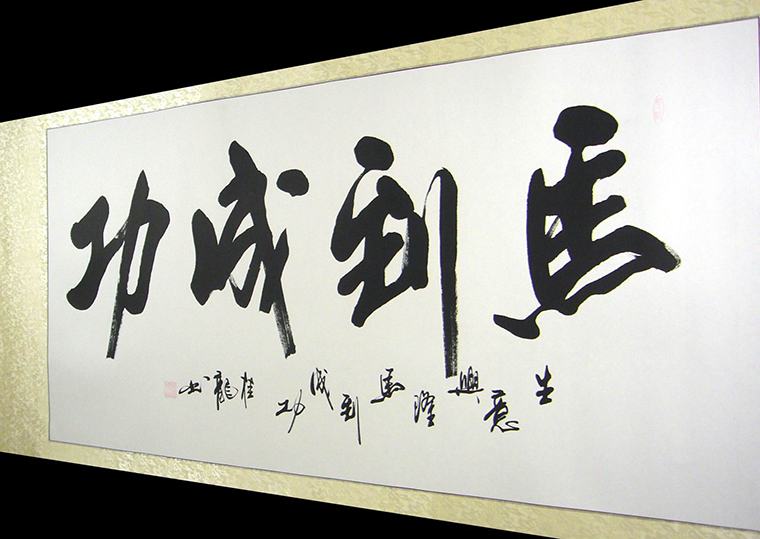 馬到成功
生意興隆馬到成功桂龍书